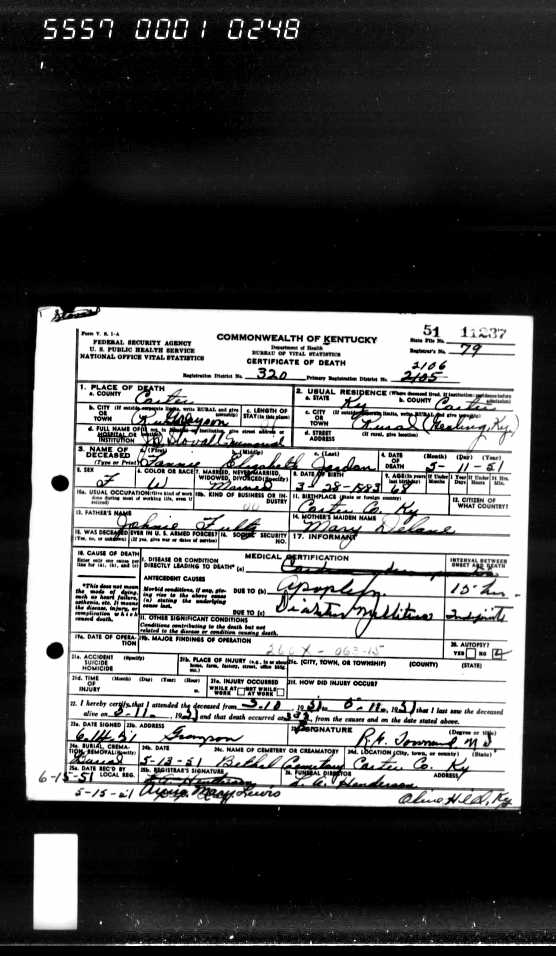 5557 0001 0248
Form V. S. 1-A
FEDERAL SECURITY AGENCY
U. S. PUBLIC HEALTH SERVICE
NATIONAL OFFICE VITAL STATISTICS
COMMONWEALTH OF KENTUCKY
Department of Health
BUREAU OF VITAL STATISTICS
CERTIFICATE OF DEATH
51 11237
State File No.
Registrar's No. 79
2106
Registration District No. 320 Primary Registration District No. 2105
1. PLACE OF DEATH
a. COUNTY Carter
2. USUAL RESIDENCE (Where deceased lived. If institution: residence before admission)
a. STATE Ky b. COUNTY Carter
b. CITY OR TOWN Grayson
c. LENGTH OF STAY (in this place)
c. CITY OR TOWN Rural Ky.
d. FULL NAME OF HOSPITAL OR INSTITUTION J Q Stovall Memorial
d. STREET ADDRESS (If rural, give location)
3. NAME OF DECEASED (Type or Print)
a. (First) b. (Middle) Elizabeth c. (Last) Jordan
4. DATE OF DEATH (Month) (Day) (Year) 5-11-51
5. SEX F
6. COLOR OR RACE W
7. MARRIED, NEVER MARRIED, WIDOWED, DIVORCED (Specify) Married
8. DATE OF BIRTH 3-28-1883
9. AGE (In years last birthday) 68
10a. USUAL OCCUPATION
10b. KIND OF BUSINESS OR INDUSTRY
11. BIRTHPLACE (State or foreign country) Carter Co. Ky
12. CITIZEN OF WHAT COUNTRY?
13. FATHER'S NAME Johnie Fults
14. MOTHER'S MAIDEN NAME Mary
15. WAS DECEASED EVER IN U. S. ARMED FORCES?
16. SOCIAL SECURITY NO.
17. INFORMANT
18. CAUSE OF DEATH
MEDICAL CERTIFICATION
INTERVAL BETWEEN ONSET AND DEATH
I. DISEASE OR CONDITION DIRECTLY LEADING TO DEATH* (a)
ANTECEDENT CAUSES
DUE TO (b) Apoplexy 15 hrs
DUE TO (c) Diabetes Mellitus
II. OTHER SIGNIFICANT CONDITIONS
Conditions contributing to the death but not related to the disease or condition causing death.
19a. DATE OF OPERATION
19b. MAJOR FINDINGS OF OPERATION
260X - 063-15
20. AUTOPSY? YES NO
21a. ACCIDENT SUICIDE HOMICIDE (Specify)
21b. PLACE OF INJURY
21c. (CITY, TOWN, OR TOWNSHIP) (COUNTY) (STATE)
21d. TIME OF INJURY (Month) (Day) (Year) (Hour)
21e. INJURY OCCURRED WHILE AT WORK NOT WHILE AT WORK
21f. HOW DID INJURY OCCUR?
22. I hereby certify that I attended the deceased from 5.10, 1951 to 5.11, 1951 that I last saw the deceased
alive on 5-11, 1951 and that death occurred at from the causes and on the date stated above.
23a. DATE SIGNED 6-14-51
23b. ADDRESS Grayson
23c. SIGNATURE (Degree or title) M D
24a. BURIAL, CREMATION, REMOVAL (Specify) Burial
24b. DATE 5-13-51
24c. NAME OF CEMETERY OR CREMATORY Bethel Cemetery
24d. LOCATION (City, town, or county) (State) Carter Co. Ky
25a. DATE REC'D BY LOCAL REG. 6-15-51
25b. REGISTRAR'S SIGNATURE
26. FUNERAL DIRECTOR L. A. Henderson ADDRESS
5-15-51 Lewis
Olive Hill, Ky